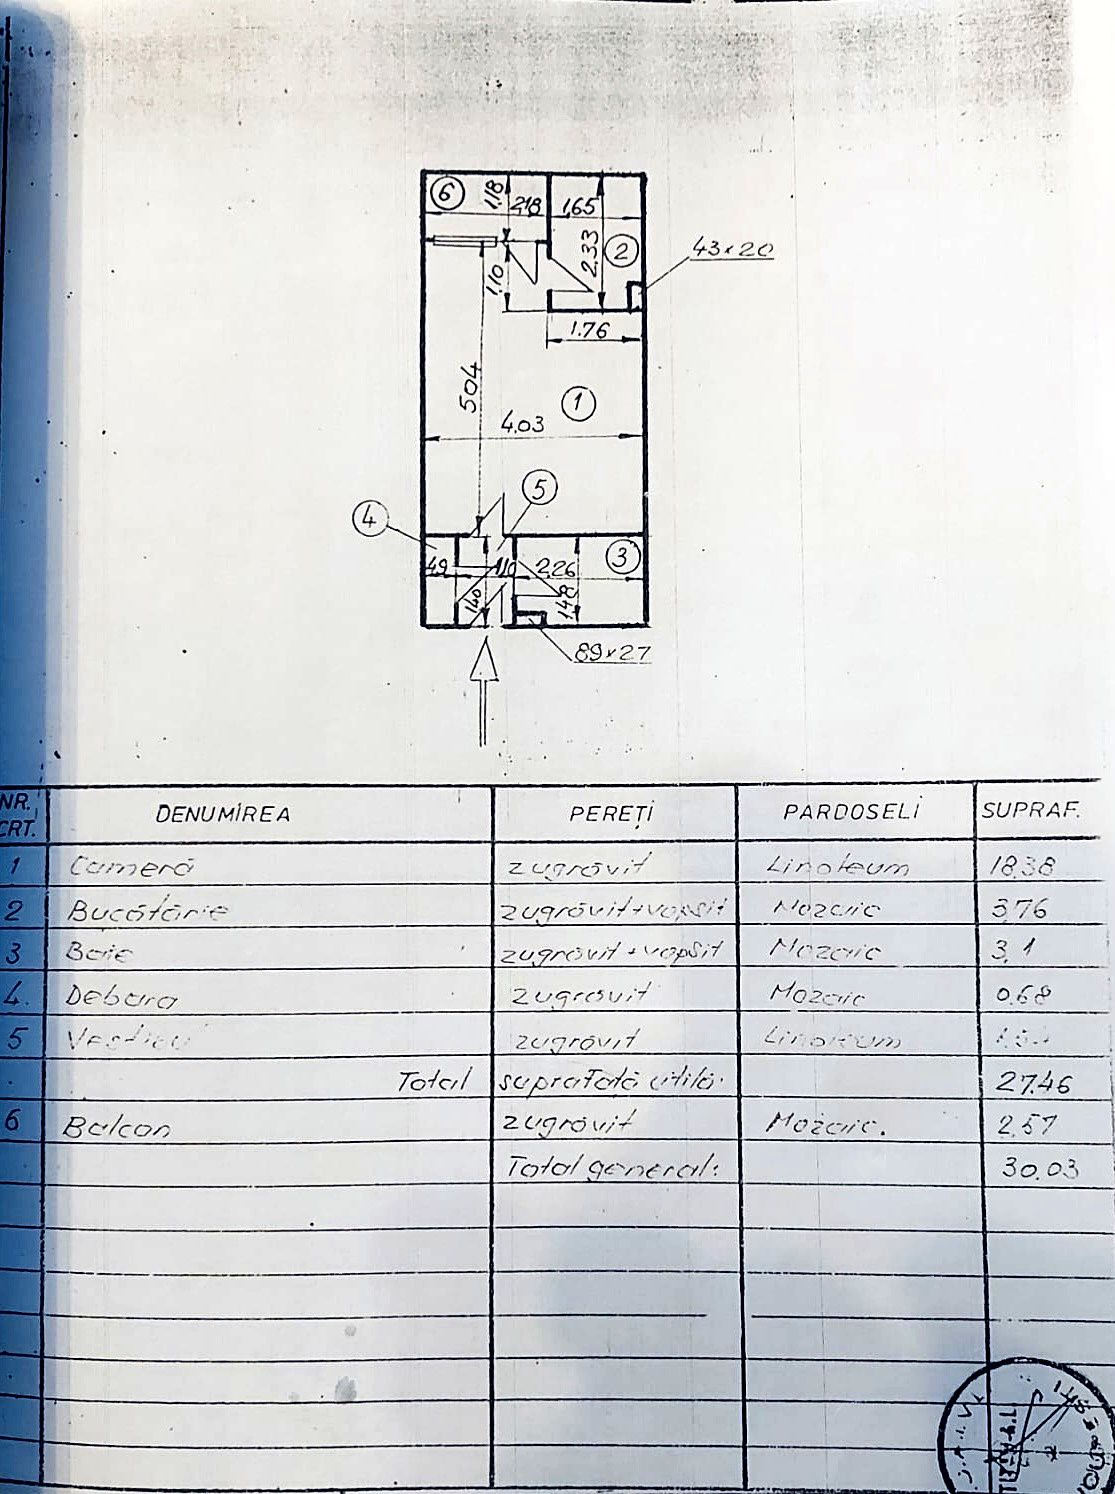 6
1,18
2,18
1,65
2.33
2
43×20
1,10
1.76
504
1
4.03
5
4
3
49
1,10
2,26
140
1,48
89×27
NR. CRT. DENUMIREA PEREȚI PARDOSELI SUPRAF.
1 Cameră zugrăvit Linoleum 18.38
2 Bucătărie zugrăvit+vopsit Mozaic 3,76
3 Baie zugrăvit+vopsit Mozaic 3,1
4. Debara zugrăvit Mozaic 0.68
5 zugrăvit Linoleum
Total suprafață utilă: 27.46
6 Balcon zugrăvit Mozaic. 2.57
Total general: 30.03